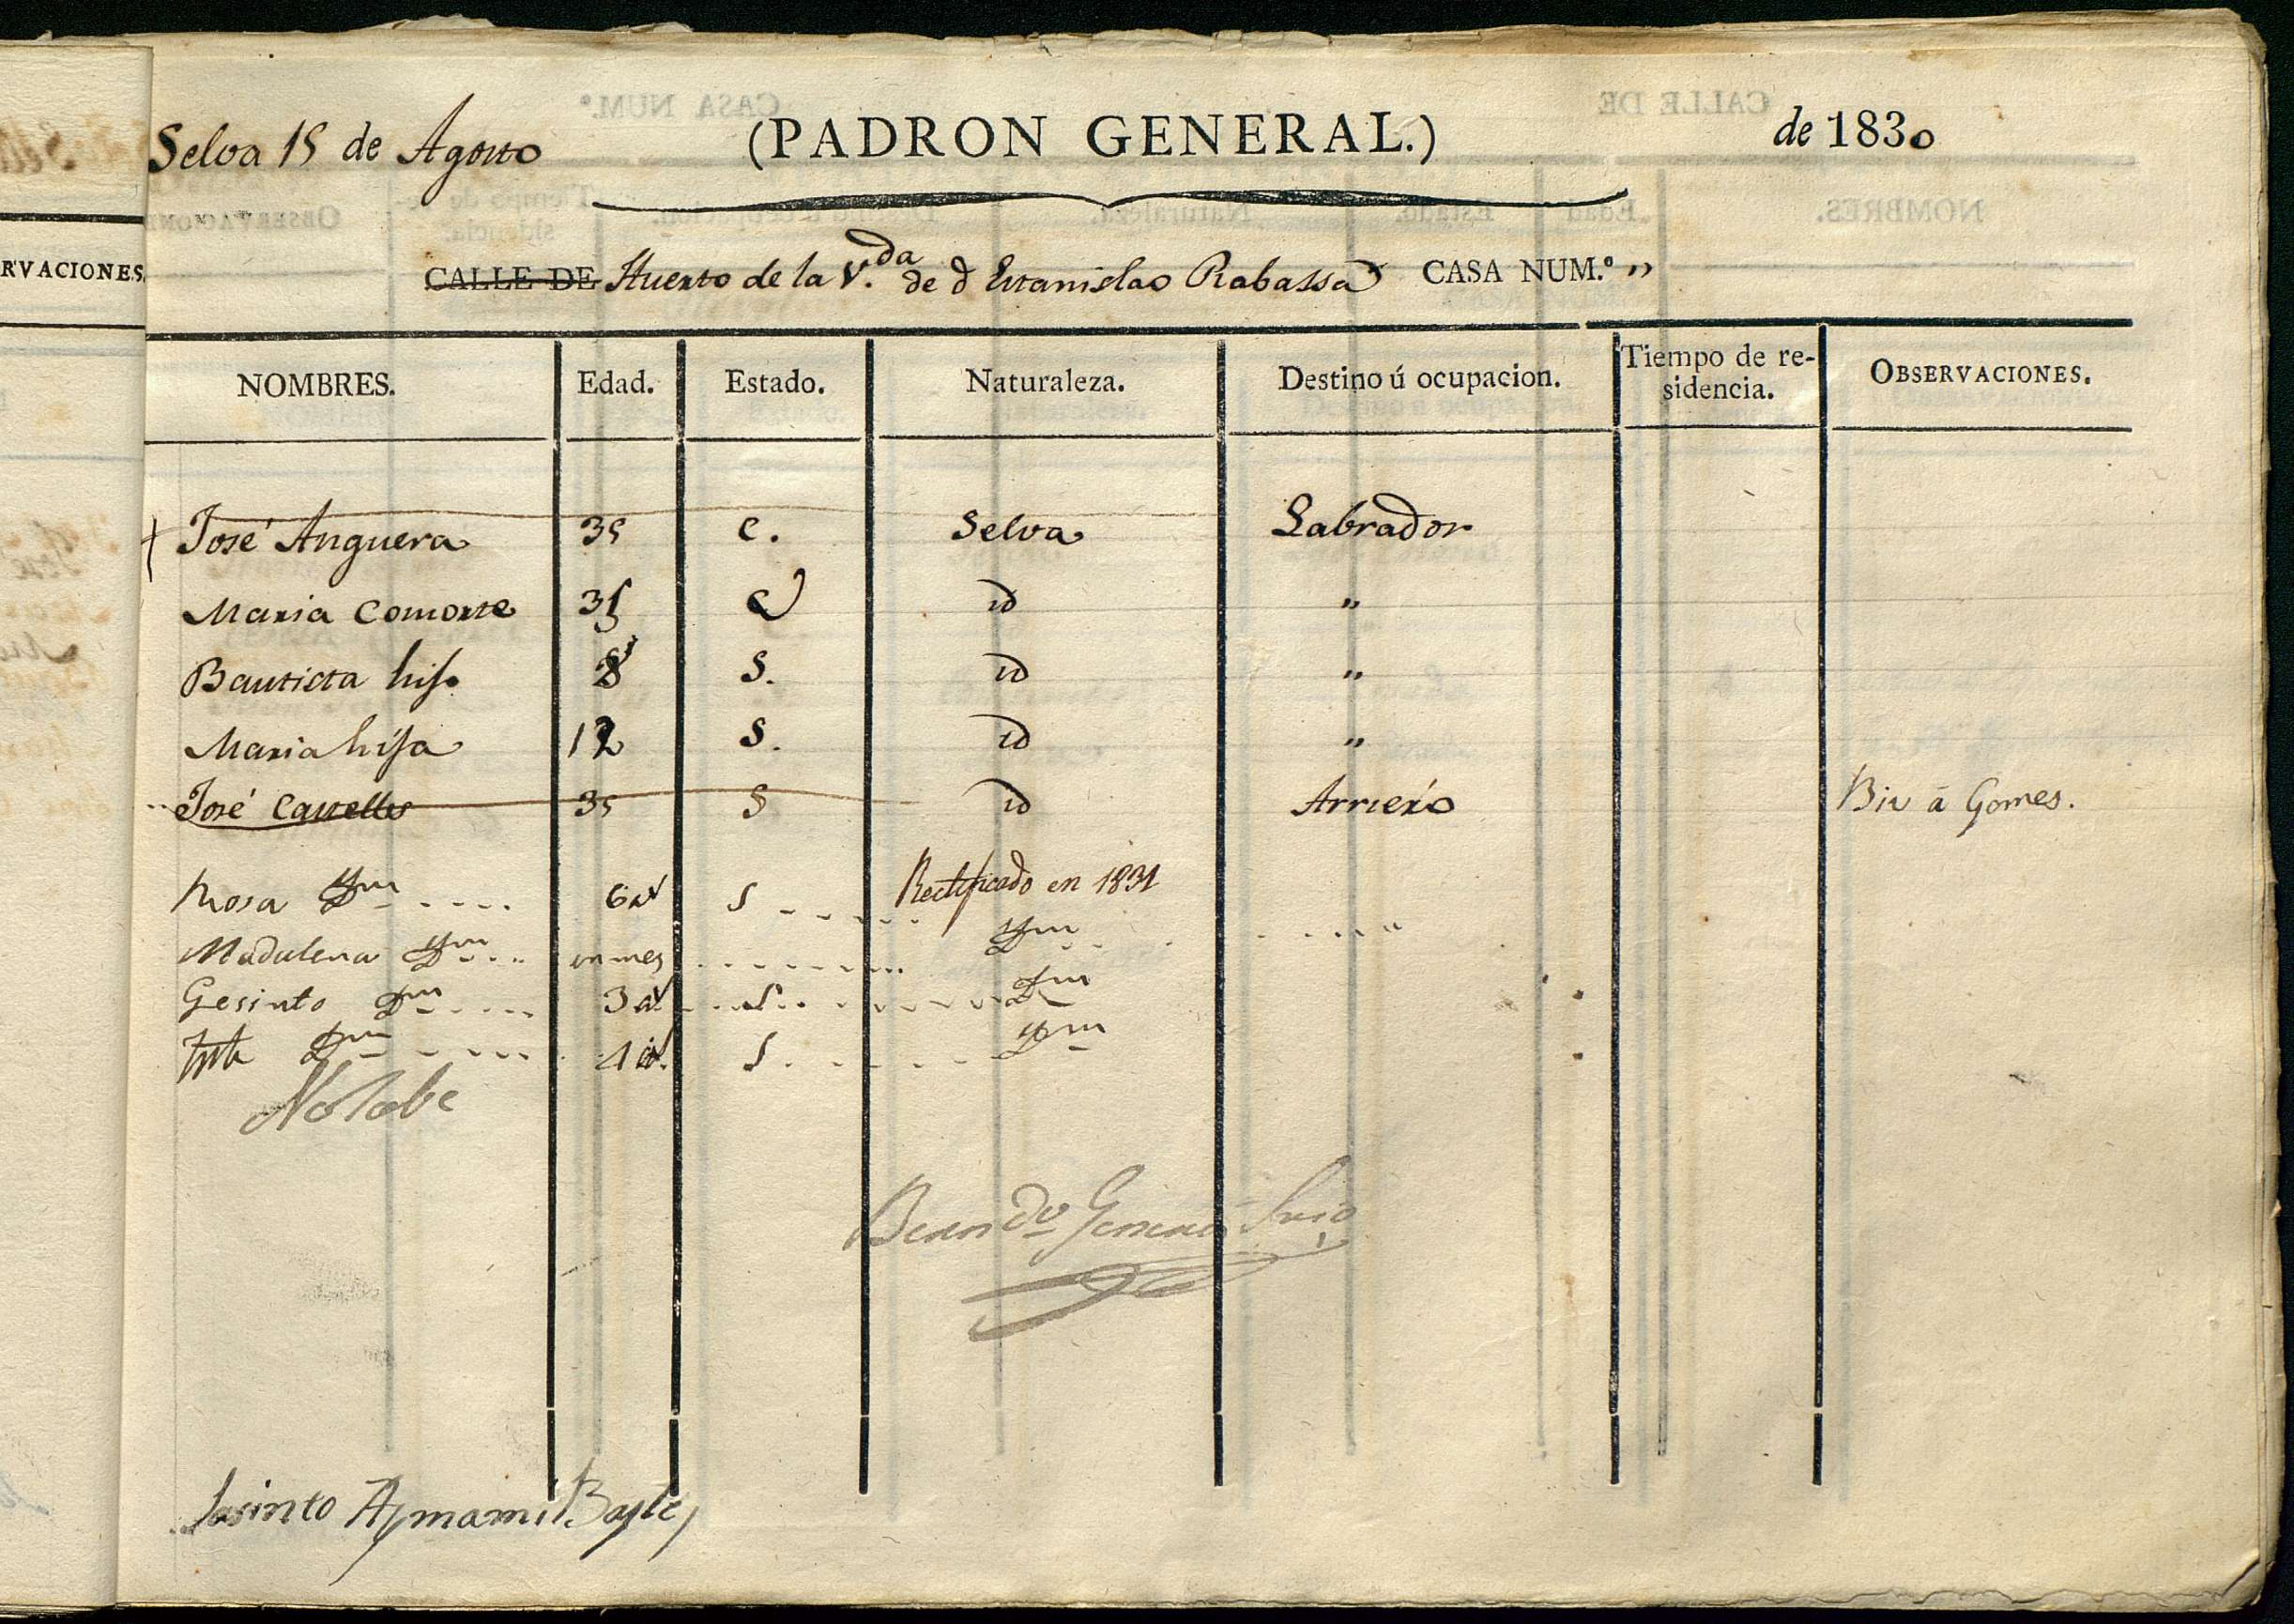 RVACIONES.
Selva 15 de Agosto (PADRON GENERAL.) de 1830
CALLE DE Huerto de la V.da de d Estanislao Rabassa CASA NUM.º "
NOMBRES. Edad. Estado. Naturaleza. Destino ú ocupacion. Tiempo de re- OBSERVACIONES.
sidencia.
José Anguera 35 C. Selva Labrador
Maria Consorte 35 C id "
Bautista hijo 8 S. id "
Maria hija 12 S. id "
José Caselles 35 S id Arriero Biv á Gomes.
Rectificado en 1831
Rosa Ym 6 a S
Madalena Ym un mes Ym "
Gesinto Ym 3 a. S. Ym
Ym 1 a. S. Ym
Notabe
Berndo Srio
Jasinto Aymamí Bayle